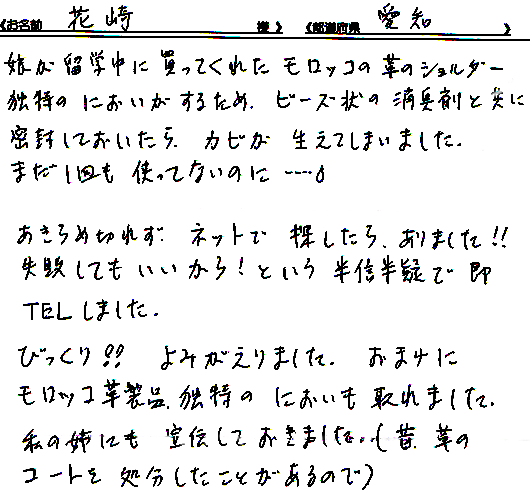 《お名前 花崎 様》 《都道府県 愛知 》
娘が留学中に買ってくれたモロッコの革のショルダー
独特のにおいがするため、ビーズ状の消臭剤と共に
密封しておいたら、カビが生えてしまいました。
まだ1回も使ってないのに……
あきらめ切れず、ネットで探したら、ありました!!
失敗してもいいから!という半信半疑で即
TELしました。
びっくり!! よみがえりました。おまけに
モロッコ革製品、独特のにおいも取れました。
私の姉にも宣伝しておきました。(昔、革の
コートを処分したことがあるので)